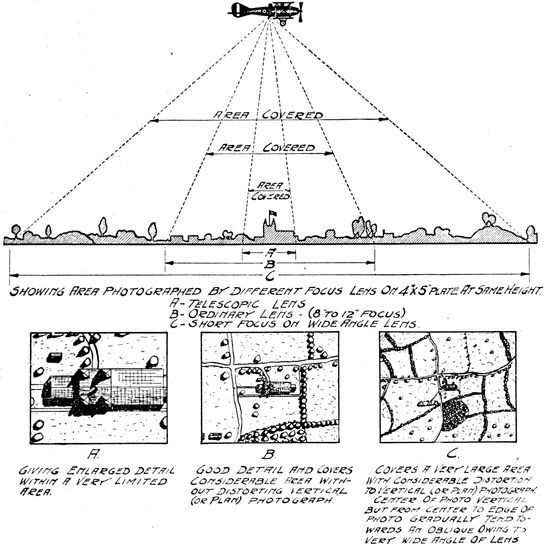 AREA COVERED
AREA COVERED
AREA
COVERED
A
B
C
SHOWING AREA PHOTOGRAPHED BY DIFFERENT FOCUS LENS ON 4"X5" PLATE AT SAME HEIGHT.
A-TELESCOPIC LENS
B-ORDINARY LENS-(8 TO 12" FOCUS)
C-SHORT FOCUS ON WIDE ANGLE LENS.
A.
GIVING ENLARGED DETAIL
WITHIN A VERY LIMITED
AREA.
B
GOOD DETAIL AND COVERS
CONSIDERABLE AREA WITH-
OUT DISTORTING VERTICAL
(OR PLAN) PHOTOGRAPH.
C.
COVERS A VERY LARGE AREA
WITH CONSIDERABLE DISTORTION
TO VERTICAL (OR PLAN) PHOTOGRAPH.
CENTER OF PHOTO VERTICAL
BUT FROM CENTER TO EDGE OF
PHOTO GRADUALLY TEND TO-
WARDS AN OBLIQUE OWING TO
VERY WIDE ANGLE OF LENS